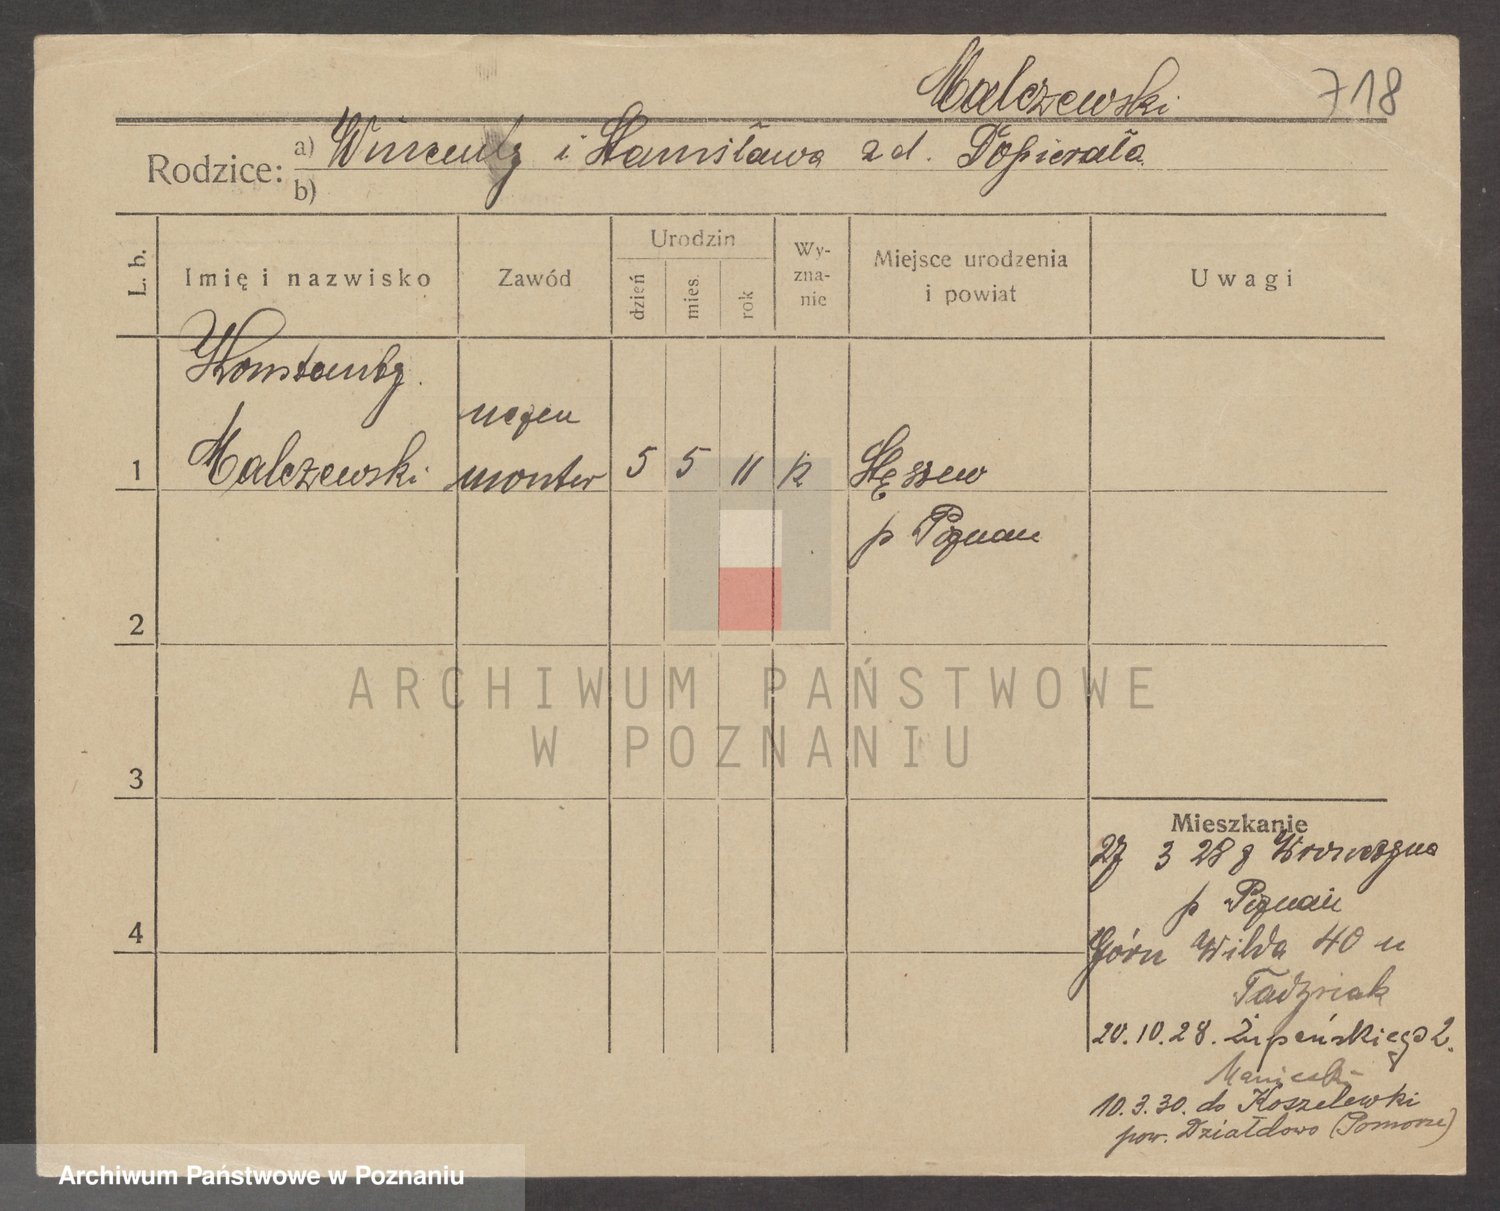 Malczewski 718
Rodzice: a) Wincenty i Stanisława zd. Popierała
b)
L. b. Imię i nazwisko Zawód Urodzin dzień mies. rok Wy-zna-nie Miejsce urodzenia i powiat Uwagi
Konstanty
uczeń
1 Malczewski monter 5 5 11 k Stęszew
p Poznań
2
ARCHIWUM PAŃSTWOWE
W POZNANIU
3
Mieszkanie
27 3 28 z
p Poznań
4
Górn Wilda 40 u
20.10.28. Żupańskiego 2.
10.3.30. do Koszelewki
pow. Działdowo (Pomorze)
Archiwum Państwowe w Poznaniu